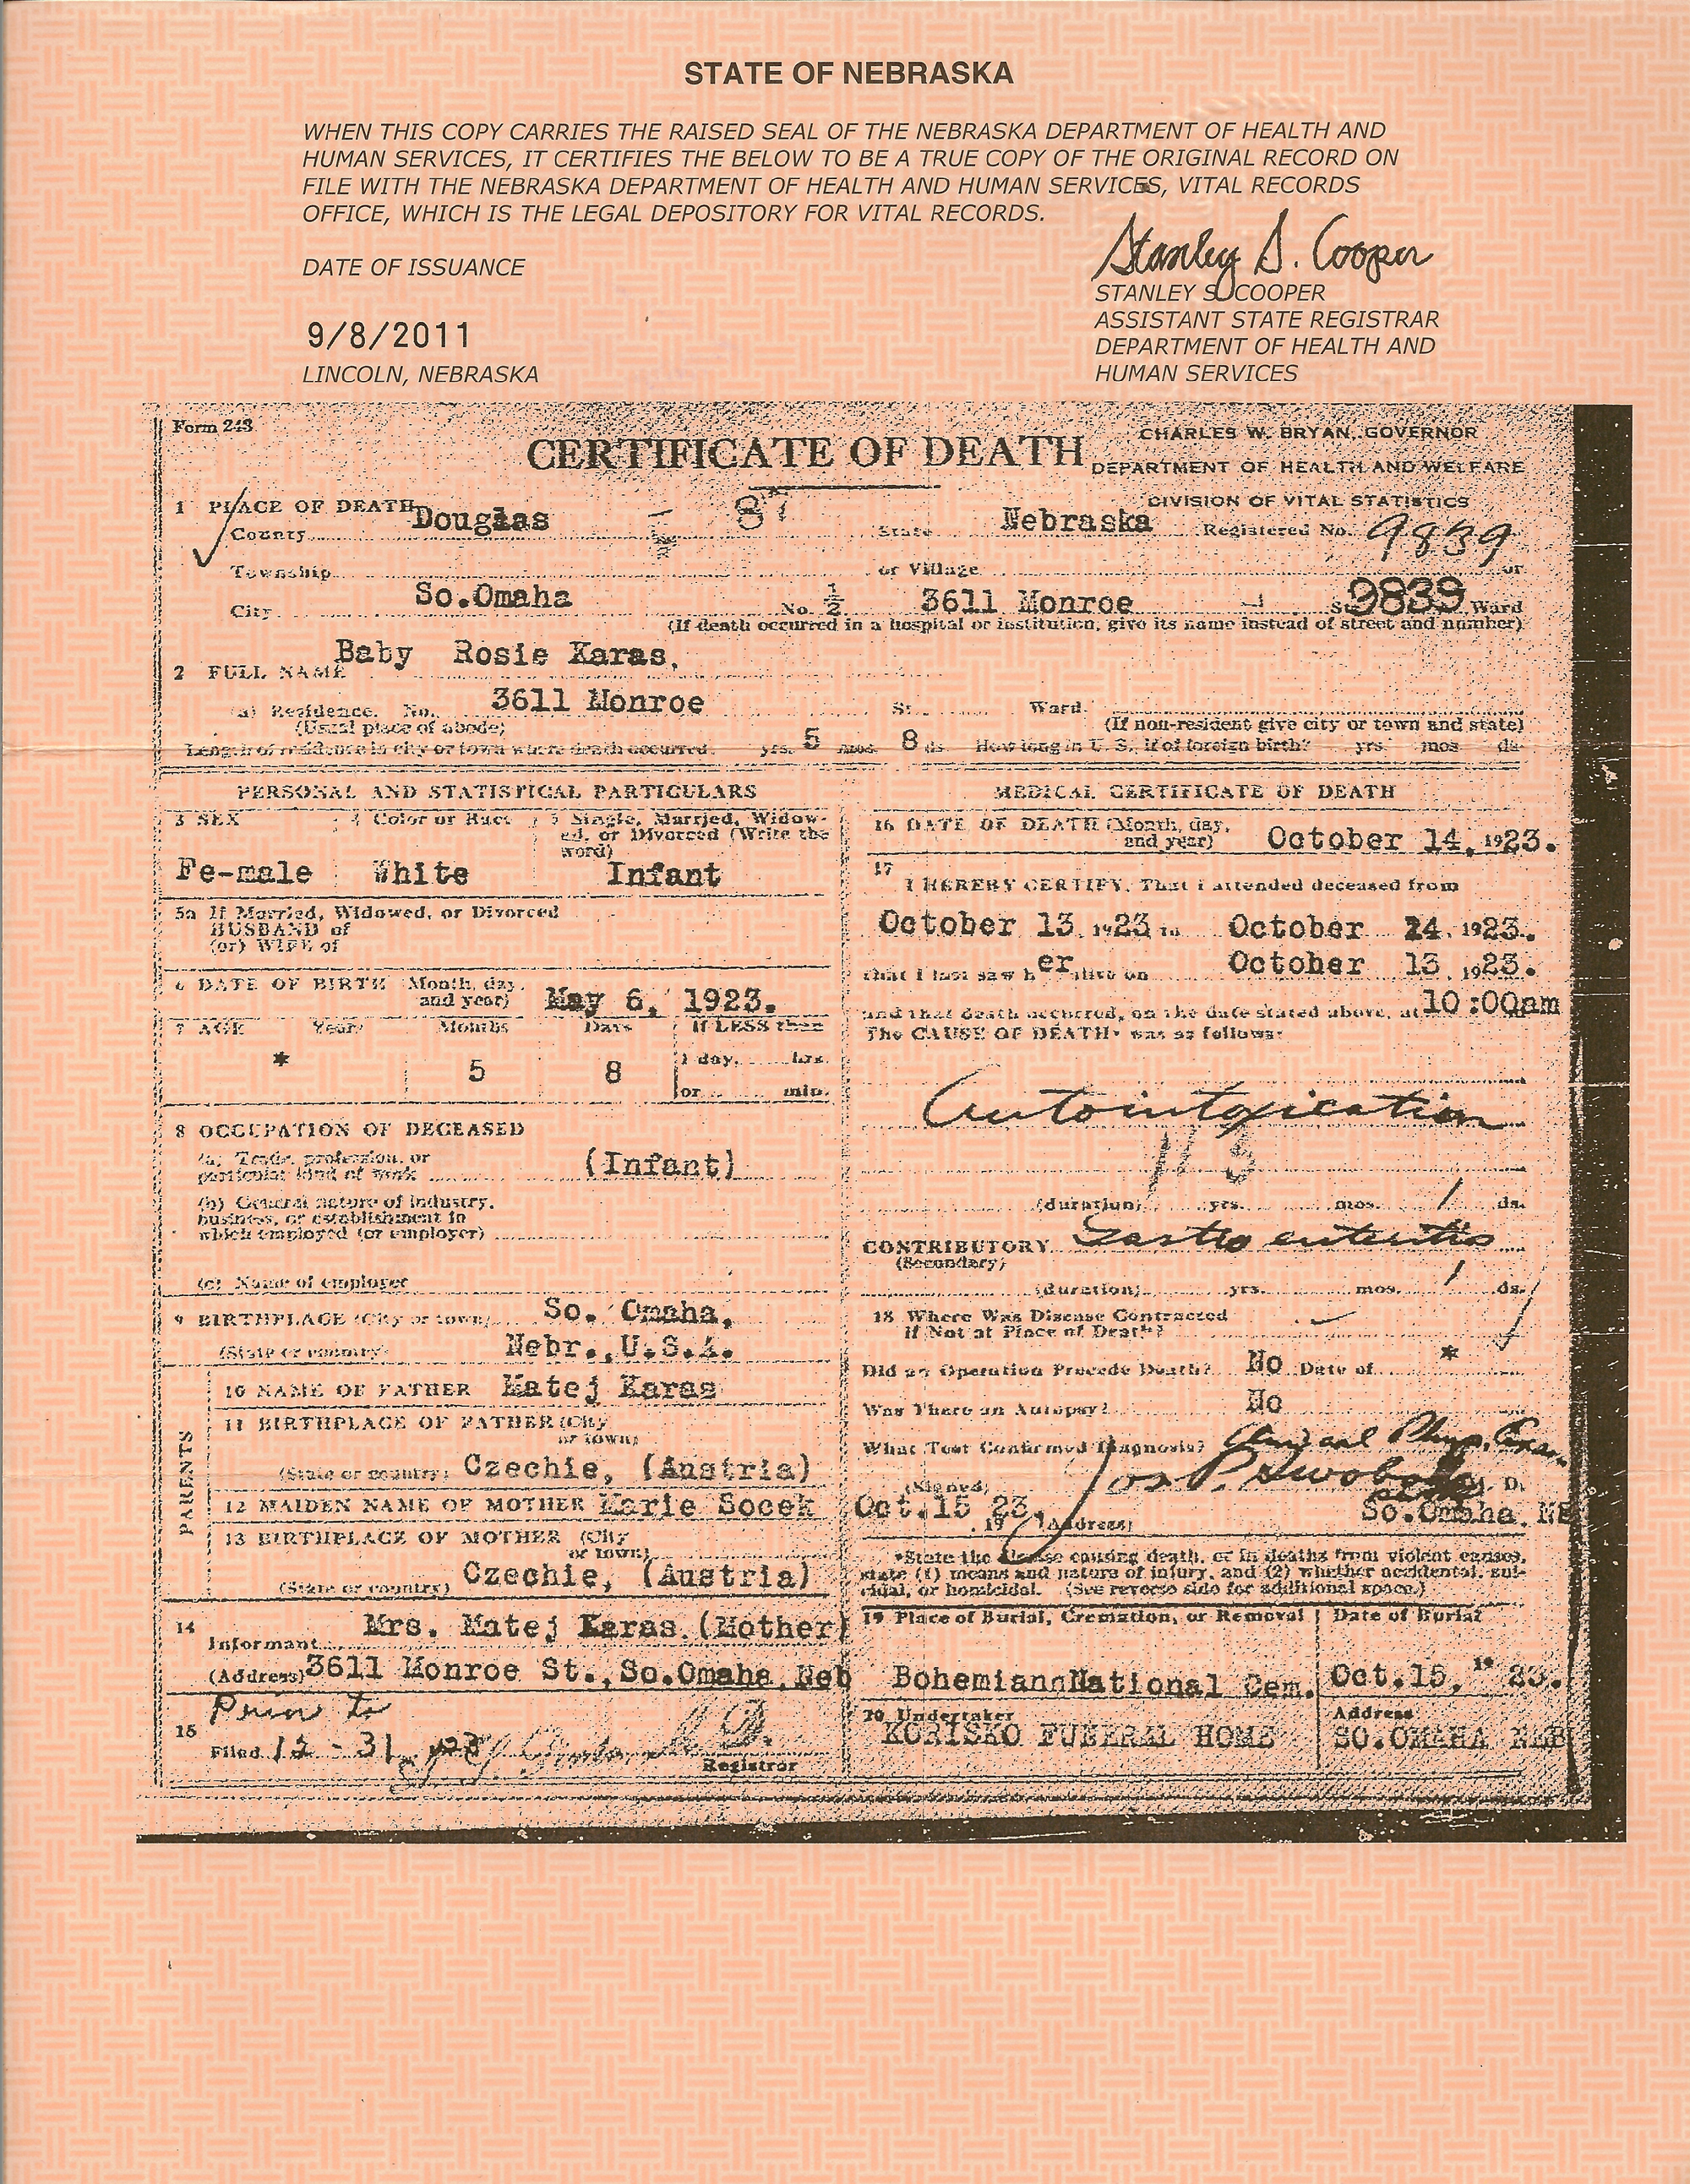 STATE OF NEBRASKA
WHEN THIS COPY CARRIES THE RAISED SEAL OF THE NEBRASKA DEPARTMENT OF HEALTH AND
HUMAN SERVICES, IT CERTIFIES THE BELOW TO BE A TRUE COPY OF THE ORIGINAL RECORD ON
FILE WITH THE NEBRASKA DEPARTMENT OF HEALTH AND HUMAN SERVICES, VITAL RECORDS
OFFICE, WHICH IS THE LEGAL DEPOSITORY FOR VITAL RECORDS.
Stanley S. Cooper
DATE OF ISSUANCE
STANLEY S. COOPER
ASSISTANT STATE REGISTRAR
9/8/2011
DEPARTMENT OF HEALTH AND
LINCOLN, NEBRASKA
HUMAN SERVICES
Form 243
CERTIFICATE OF DEATH
CHARLES W. BRYAN, GOVERNOR
DEPARTMENT OF HEALTH AND WELFARE
DIVISION OF VITAL STATISTICS
1 PLACE OF DEATH
County Douglas State Nebraska Registered No. 9839
Township or Village or
City So.Omaha No. 1/2 3611 Monroe St. 9839 Ward
(If death occurred in a hospital or institution, give its name instead of street and number)
2 FULL NAME Baby Rosie Karas,
(a) Residence. No. 3611 Monroe St. Ward.
(Usual place of abode) (If non-resident give city or town and state)
Length of residence in city or town where death occurred. yrs. 5 mos. 8 ds. How long in U. S., if of foreign birth? yrs. mos. ds.
PERSONAL AND STATISTICAL PARTICULARS
3 SEX 4 Color or Race 5 Single, Married, Widow-
ed, or Divorced (Write the
word)
Fe-male White Infant
5a If Married, Widowed, or Divorced
HUSBAND of
(or) WIFE of
6 DATE OF BIRTH (Month, day,
and year) May 6, 1923.
7 AGE Years Months Days If LESS than
* 5 8 1 day, hrs.
or min.
8 OCCUPATION OF DECEASED
(a) Trade, profession, or
particular kind of work (Infant)
(b) General nature of industry,
business, or establishment in
which employed (or employer)
(c) Name of employer
9 BIRTHPLACE (City or town) So. Omaha,
(State or country) Nebr., U.S.A.
PARENTS
10 NAME OF FATHER Matej Karas
11 BIRTHPLACE OF FATHER (City
or town)
(State or country) Czechie, (Austria)
12 MAIDEN NAME OF MOTHER Marie Socek
13 BIRTHPLACE OF MOTHER (City
or town)
(State or country) Czechie, (Austria)
14 Informant Mrs. Matej Karas (Mother)
(Address) 3611 Monroe St., So.Omaha, Neb
Prior to
15 Filed 12-31, 1923
M.D.
Registrar
MEDICAL CERTIFICATE OF DEATH
16 DATE OF DEATH (Month, day,
and year) October 14, 1923.
17 I HEREBY CERTIFY, That I attended deceased from
October 13, 1923 to October 14, 1923.
that I last saw her alive on October 13, 1923.
and that death occurred, on the date stated above, at 10:00am
The CAUSE OF DEATH* was as follows:
Autointoxication
113
(duration) yrs. mos. 1 ds.
CONTRIBUTORY Gastro enteritis
(Secondary)
(duration) yrs. mos. 1 ds.
18 Where Was Disease Contracted
if Not at Place of Death?
Did an Operation Precede Death? No Date of *
Was There an Autopsy? No
What Test Confirmed Diagnosis? Phys. Exam.
(Signed) Jos P. Swoboda M. D.
Oct.15 1923. (Address) So.Omaha, NE
*State the disease causing death, or in deaths from violent causes,
state (1) means and nature of injury, and (2) whether accidental, sui-
cidal, or homicidal. (See reverse side for additional space.)
19 Place of Burial, Cremation, or Removal Date of Burial
Bohemian National Cem. Oct.15, 1923.
20 Undertaker Address
KORISKO FUNERAL HOME SO.OMAHA NEB